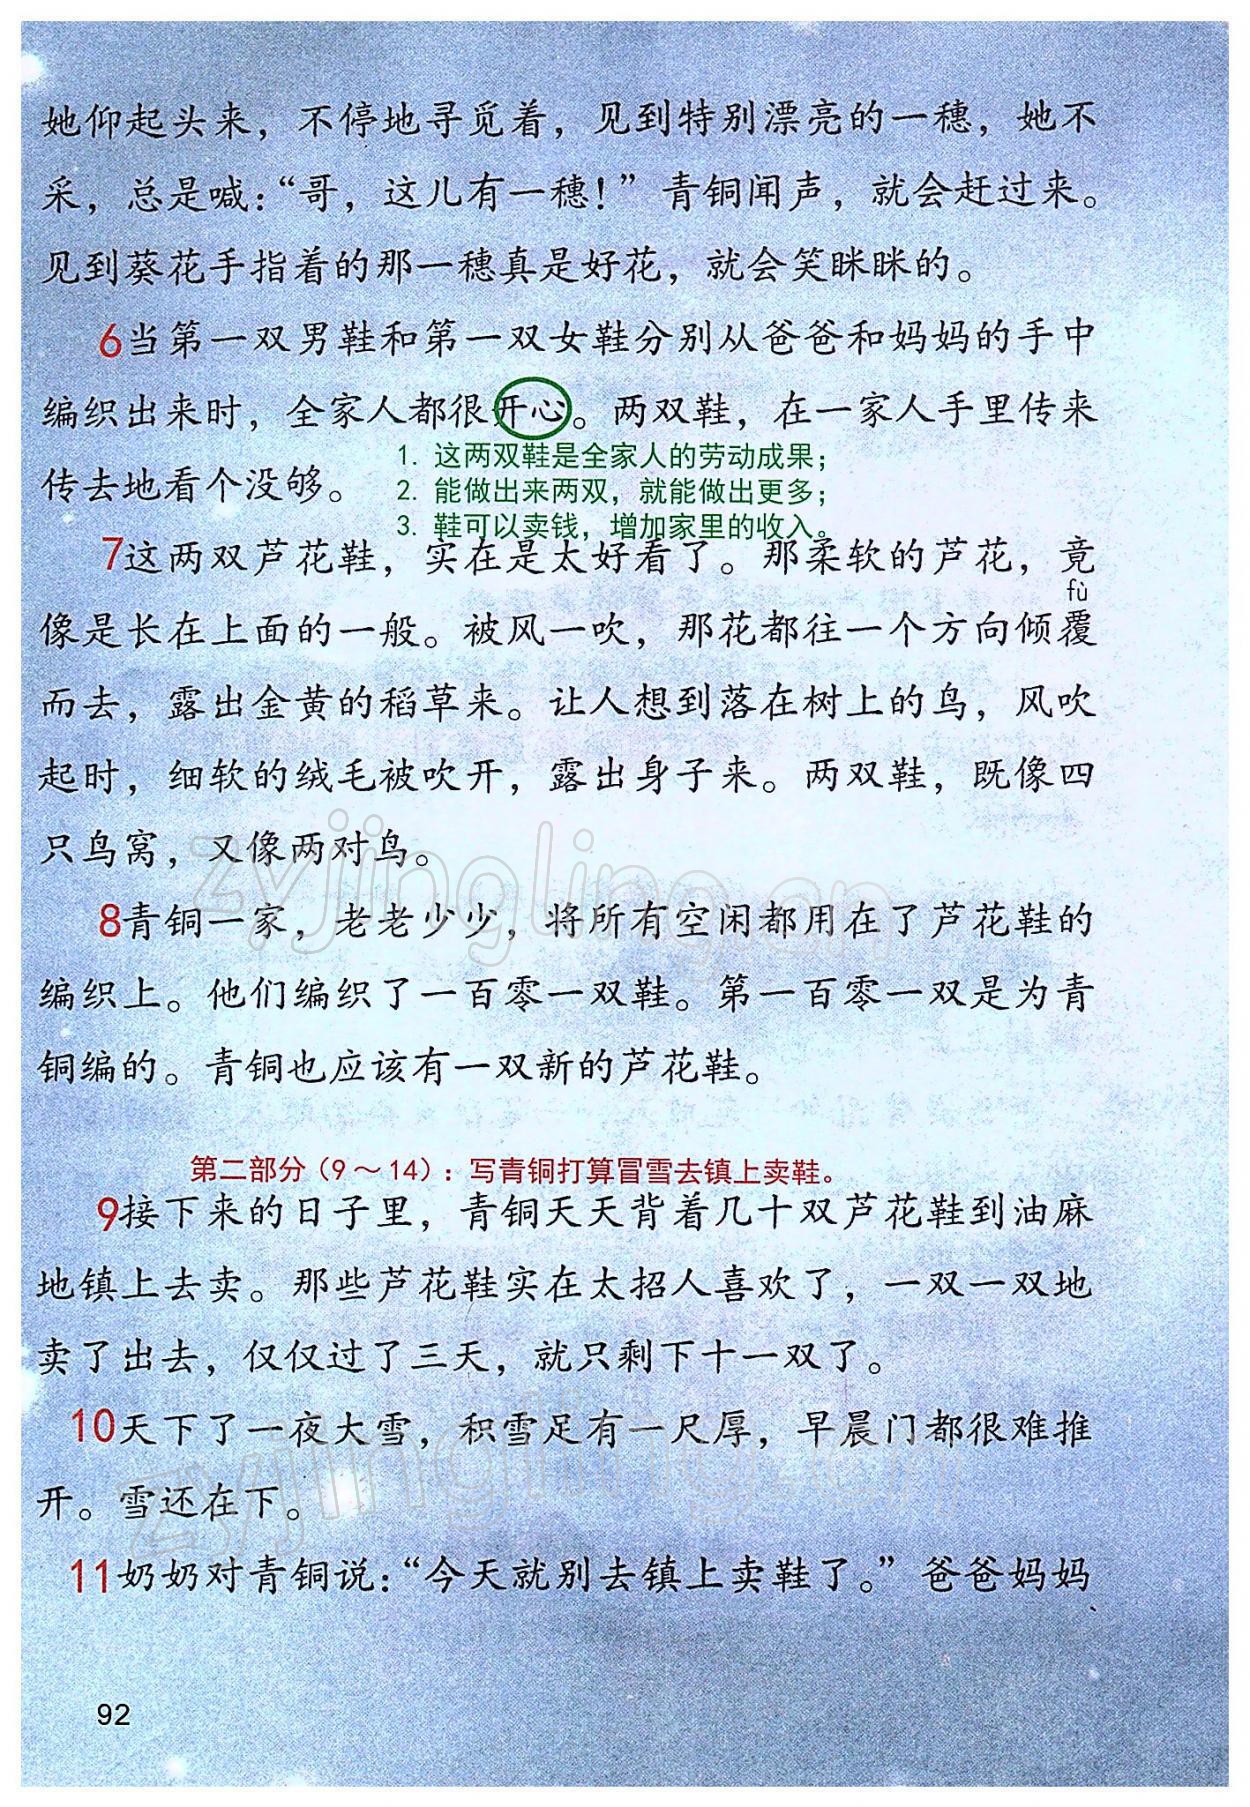 她仰起头来，不停地寻觅着，见到特别漂亮的一穗，她不
采，总是喊：“哥，这儿有一穗！”青铜闻声，就会赶过来。
见到葵花手指着的那一穗真是好花，就会笑眯眯的。
6当第一双男鞋和第一双女鞋分别从爸爸和妈妈的手中
编织出来时，全家人都很开心。两双鞋，在一家人手里传来
1. 这两双鞋是全家人的劳动成果；
传去地看个没够。
2. 能做出来两双，就能做出更多；
3. 鞋可以卖钱，增加家里的收入。
7这两双芦花鞋，实在是太好看了。那柔软的芦花，竟
fù
像是长在上面的一般。被风一吹，那花都往一个方向倾覆
而去，露出金黄的稻草来。让人想到落在树上的鸟，风吹
起时，细软的绒毛被吹开，露出身子来。两双鞋，既像四
只鸟窝，又像两对鸟。
zyjingling.cn
8青铜一家，老老少少，将所有空闲都用在了芦花鞋的
编织上。他们编织了一百零一双鞋。第一百零一双是为青
铜编的。青铜也应该有一双新的芦花鞋。
第二部分（9～14）：写青铜打算冒雪去镇上卖鞋。
9接下来的日子里，青铜天天背着几十双芦花鞋到油麻
地镇上去卖。那些芦花鞋实在太招人喜欢了，一双一双地
卖了出去，仅仅过了三天，就只剩下十一双了。
10天下了一夜大雪，积雪足有一尺厚，早晨门都很难推
开。雪还在下。
zyjingling.cn
11奶奶对青铜说：“今天就别去镇上卖鞋了。”爸爸妈妈
92